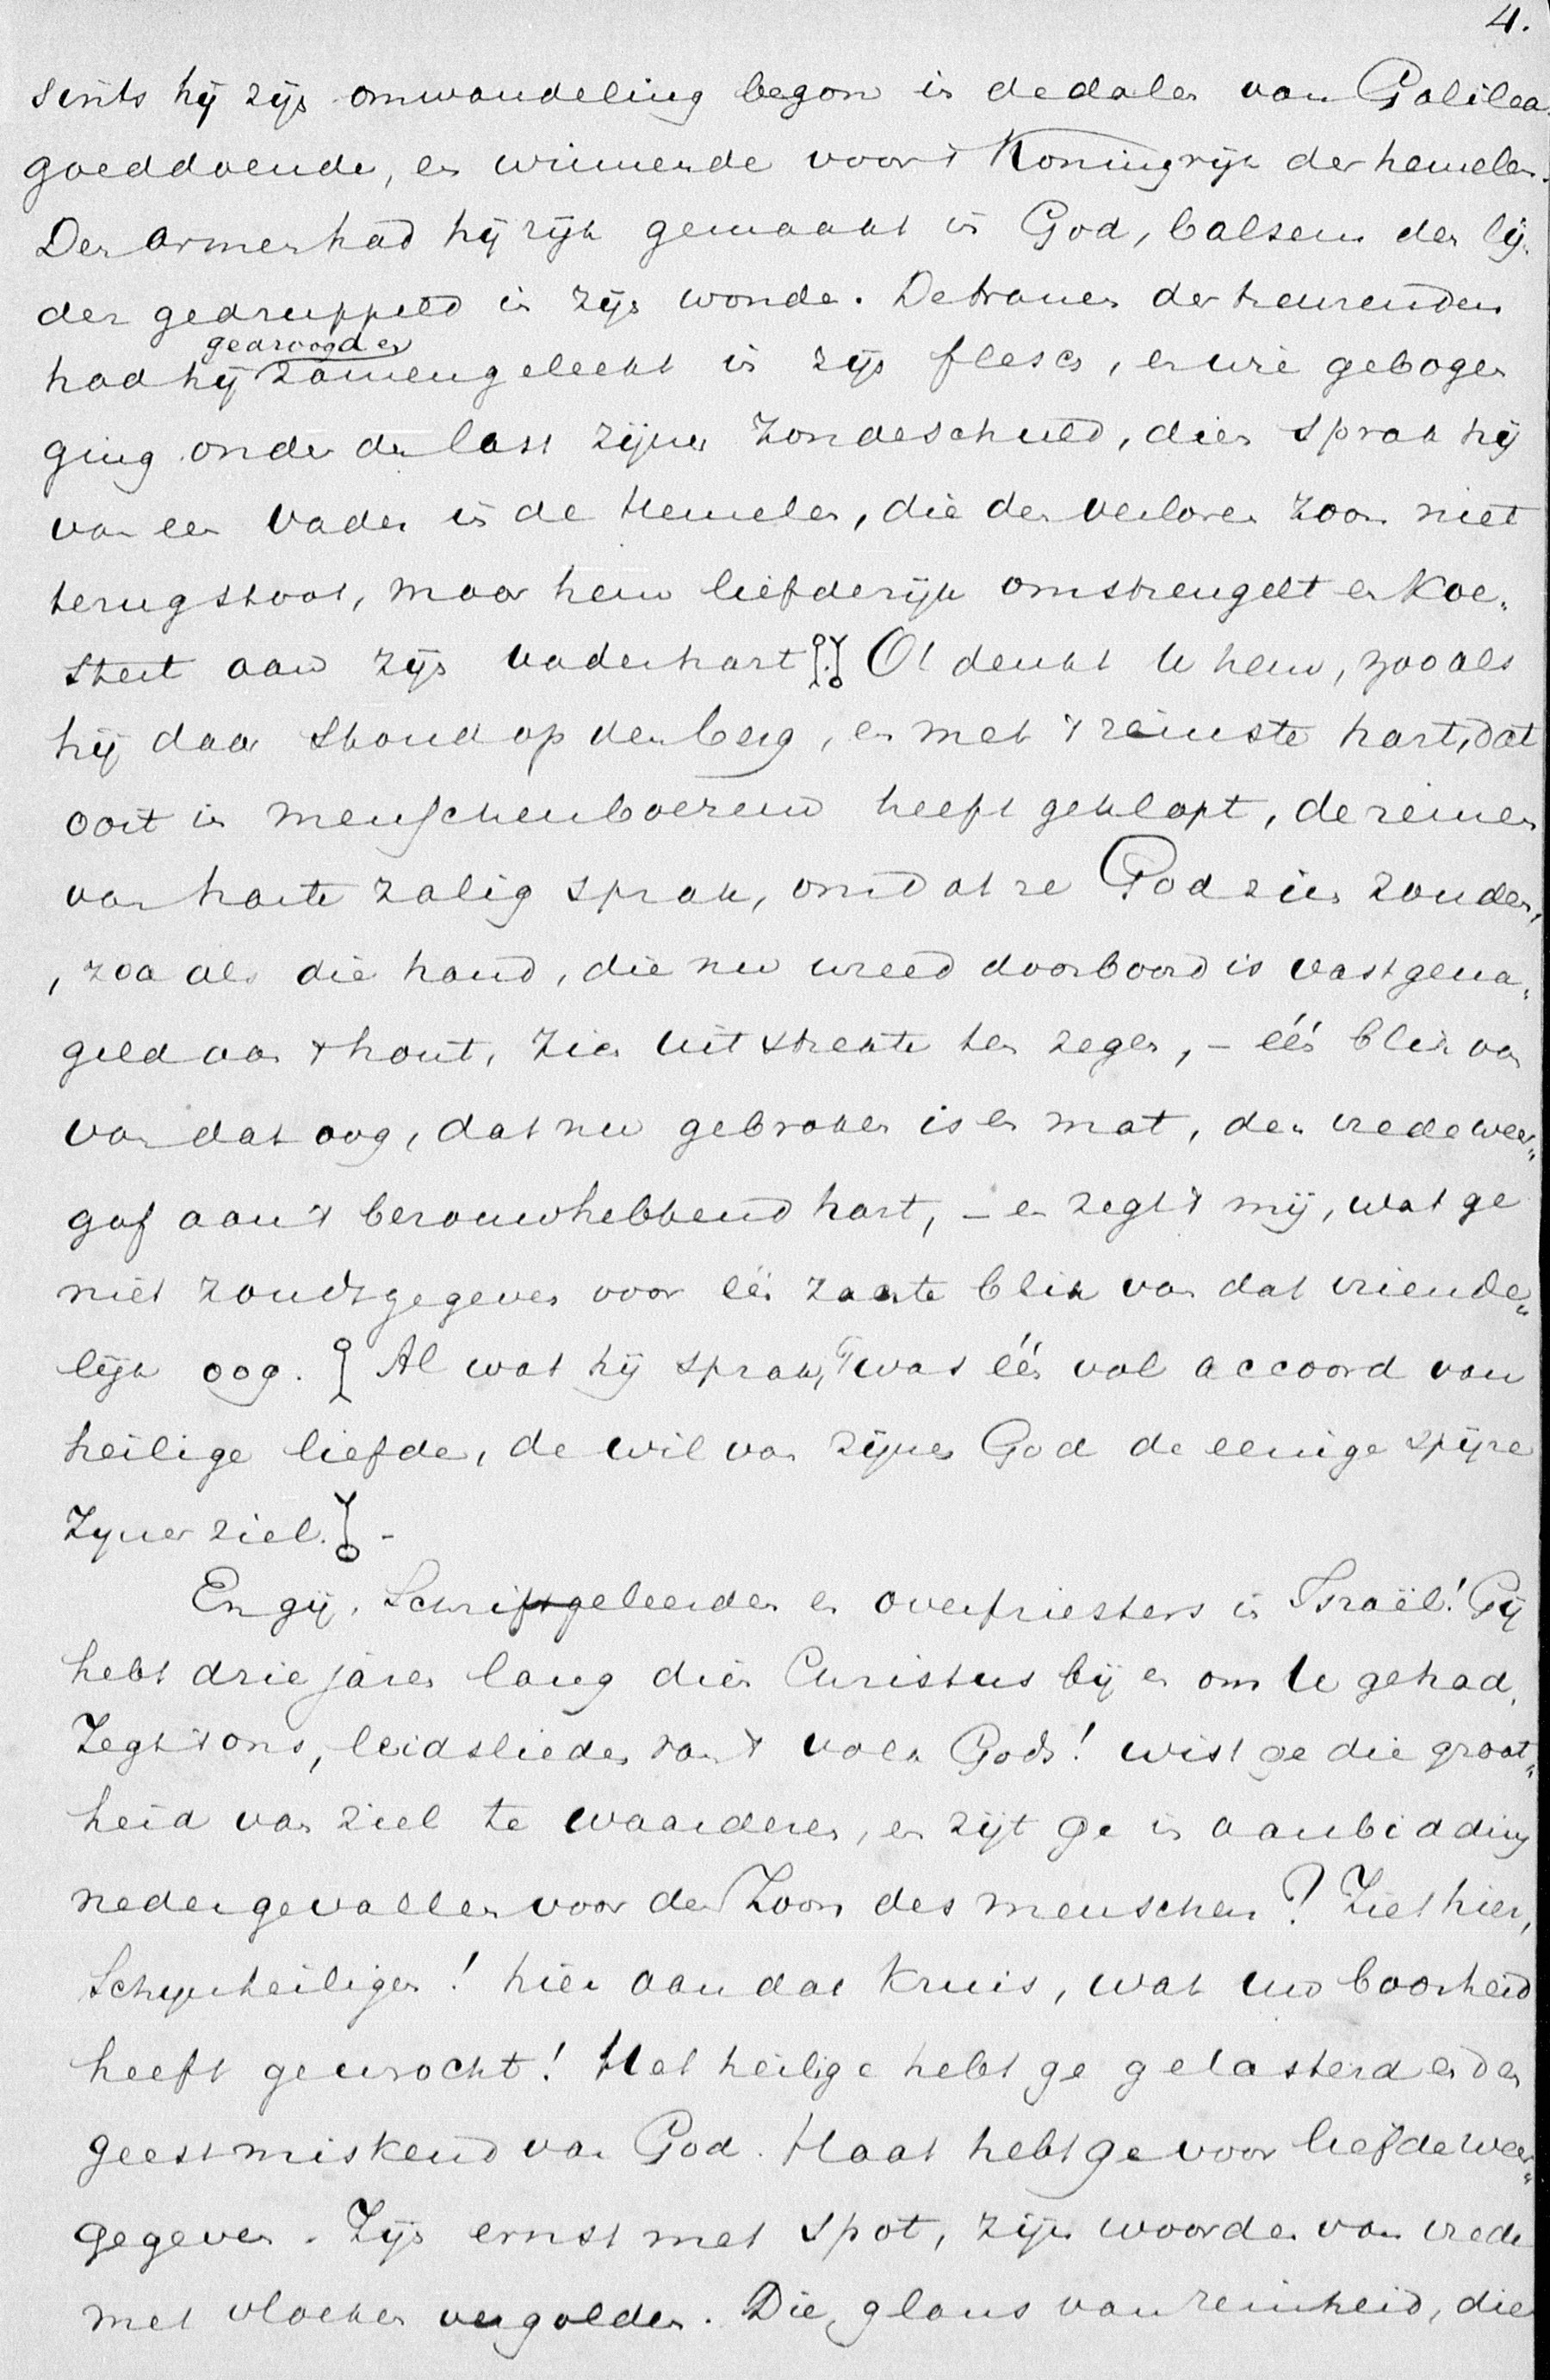 4.
sints hij zijn omwandeling begon in de dalen van Galilea
goeddoende, en winnende voor 't Koningrijk der hemelen.
Den armen had hij rijk gemaakt in God, balsem den lij-
der gedruppeld in zijn wonde. De tranen der treurenden
gedroogd en
had hij zamengeleekt in zijn flesch, en wie gebogen
ging onder den last zijner zondeschuld, dien sprak hij
van een Vader in de Hemelen, die den verloren zoon niet
terugstoot, maar hem liefderijk omstrengelt en koe-
stert aan zijn vaderhart! O! denkt U hem, zooals
hij daar stond op den berg, en met 't reinste hart, dat
ooit in menschenboezem heeft geklopt, de reinen
van harte zalig sprak, omdat ze God zien zouden,
, zooals die hand, die nu wreed doorboord is vastgena-
geld aan 't hout, zich uitstrekte ten zegen, – één blik van
van dat oog, dat nu gebroken is en mat, den vrede weer-
gaf aan 't berouwhebbend hart, – en zegt 't mij, wat ge
niet zoudt gegeven voor één zachte blik van dat vriende-
lijk oog. Al wat hij sprak, 't was één vol accoord van
heilige liefde, de wil van zijnen God de eenige spijze
Zijner ziel. –
En gij, Schriftgeleerden en overpriesters in Israël! Gij
hebt drie jaren lang dien Christus bij en om U gehad.
Zegt 't ons, leidslieden van 't volk Gods! wist ge die groot-
heid van ziel te waarderen, en zijt ge in aanbidding
nedergevallen voor den Zoon des menschen? Ziet hier,
Schijnheiligen! hier aan dat kruis, wat uw boosheid
heeft gewrocht! Het heilige hebt ge gelasterd en den
geest miskend van God. Haat hebt ge voor liefde weer-
gegeven. Zijn ernst met spot, zijn woorden van vrede
met vloeken vergolden. Die glans van reinheid, die